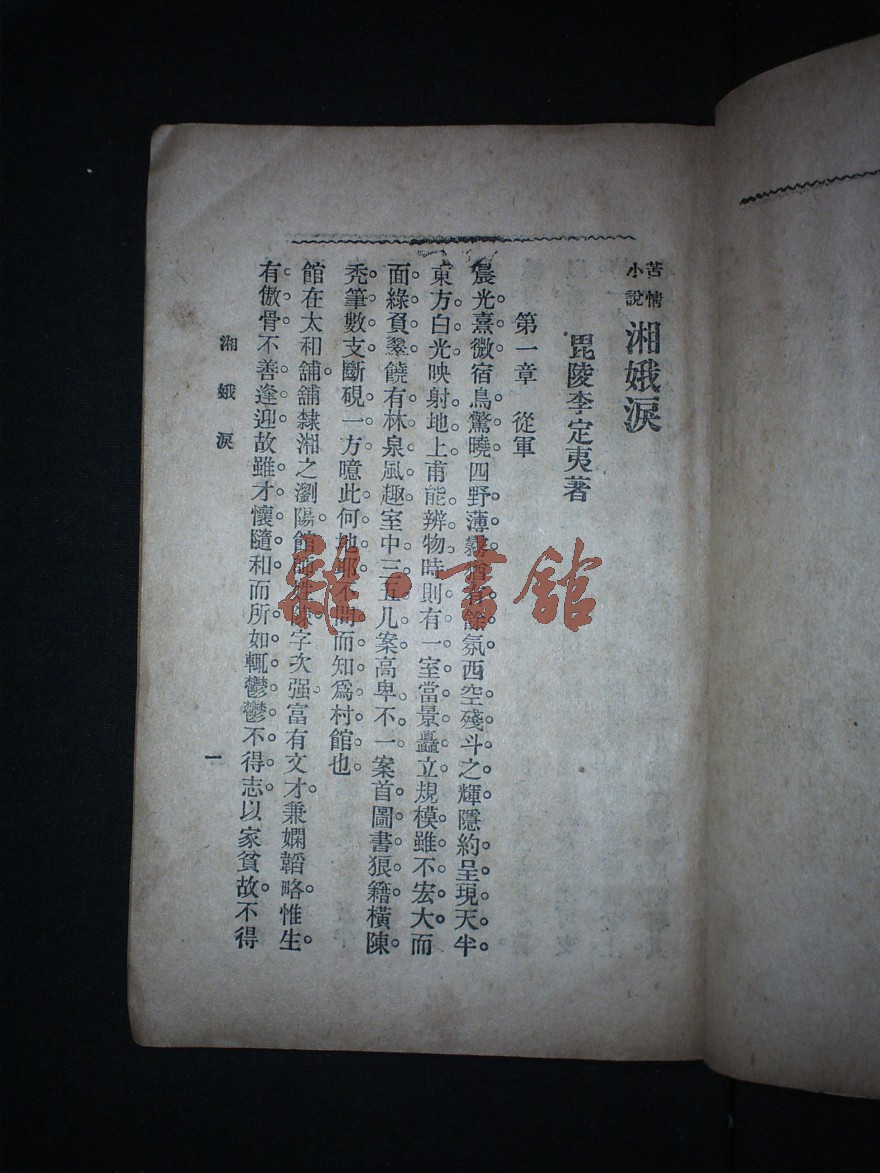 苦情小說 湘娥淚
毘陵李定夷著
第一章　從軍
晨光熹微。宿鳥驚曉。四野薄霧。猶有餘氛。西空殘斗之輝。隱約呈現天半。
東方白光映射地上。甫能辨物。時則有一室當景矗立。規模雖不宏大。而
面綠負翠。饒有林泉風趣。室中三五几案。高卑不一。案首圖書狼籍。橫陳
禿筆數支。斷硯一方。噫此何地耶。不問而知爲村館也
館在太和舖。舖隸湘之瀏陽。館師姓陳字次强。富有文才。兼嫻韜略。惟生
有傲骨。不善逢迎。故雖才懷隨和。而所如輒鬱鬱不得志。以家貧故。不得
湘娥淚
一
雜·書館